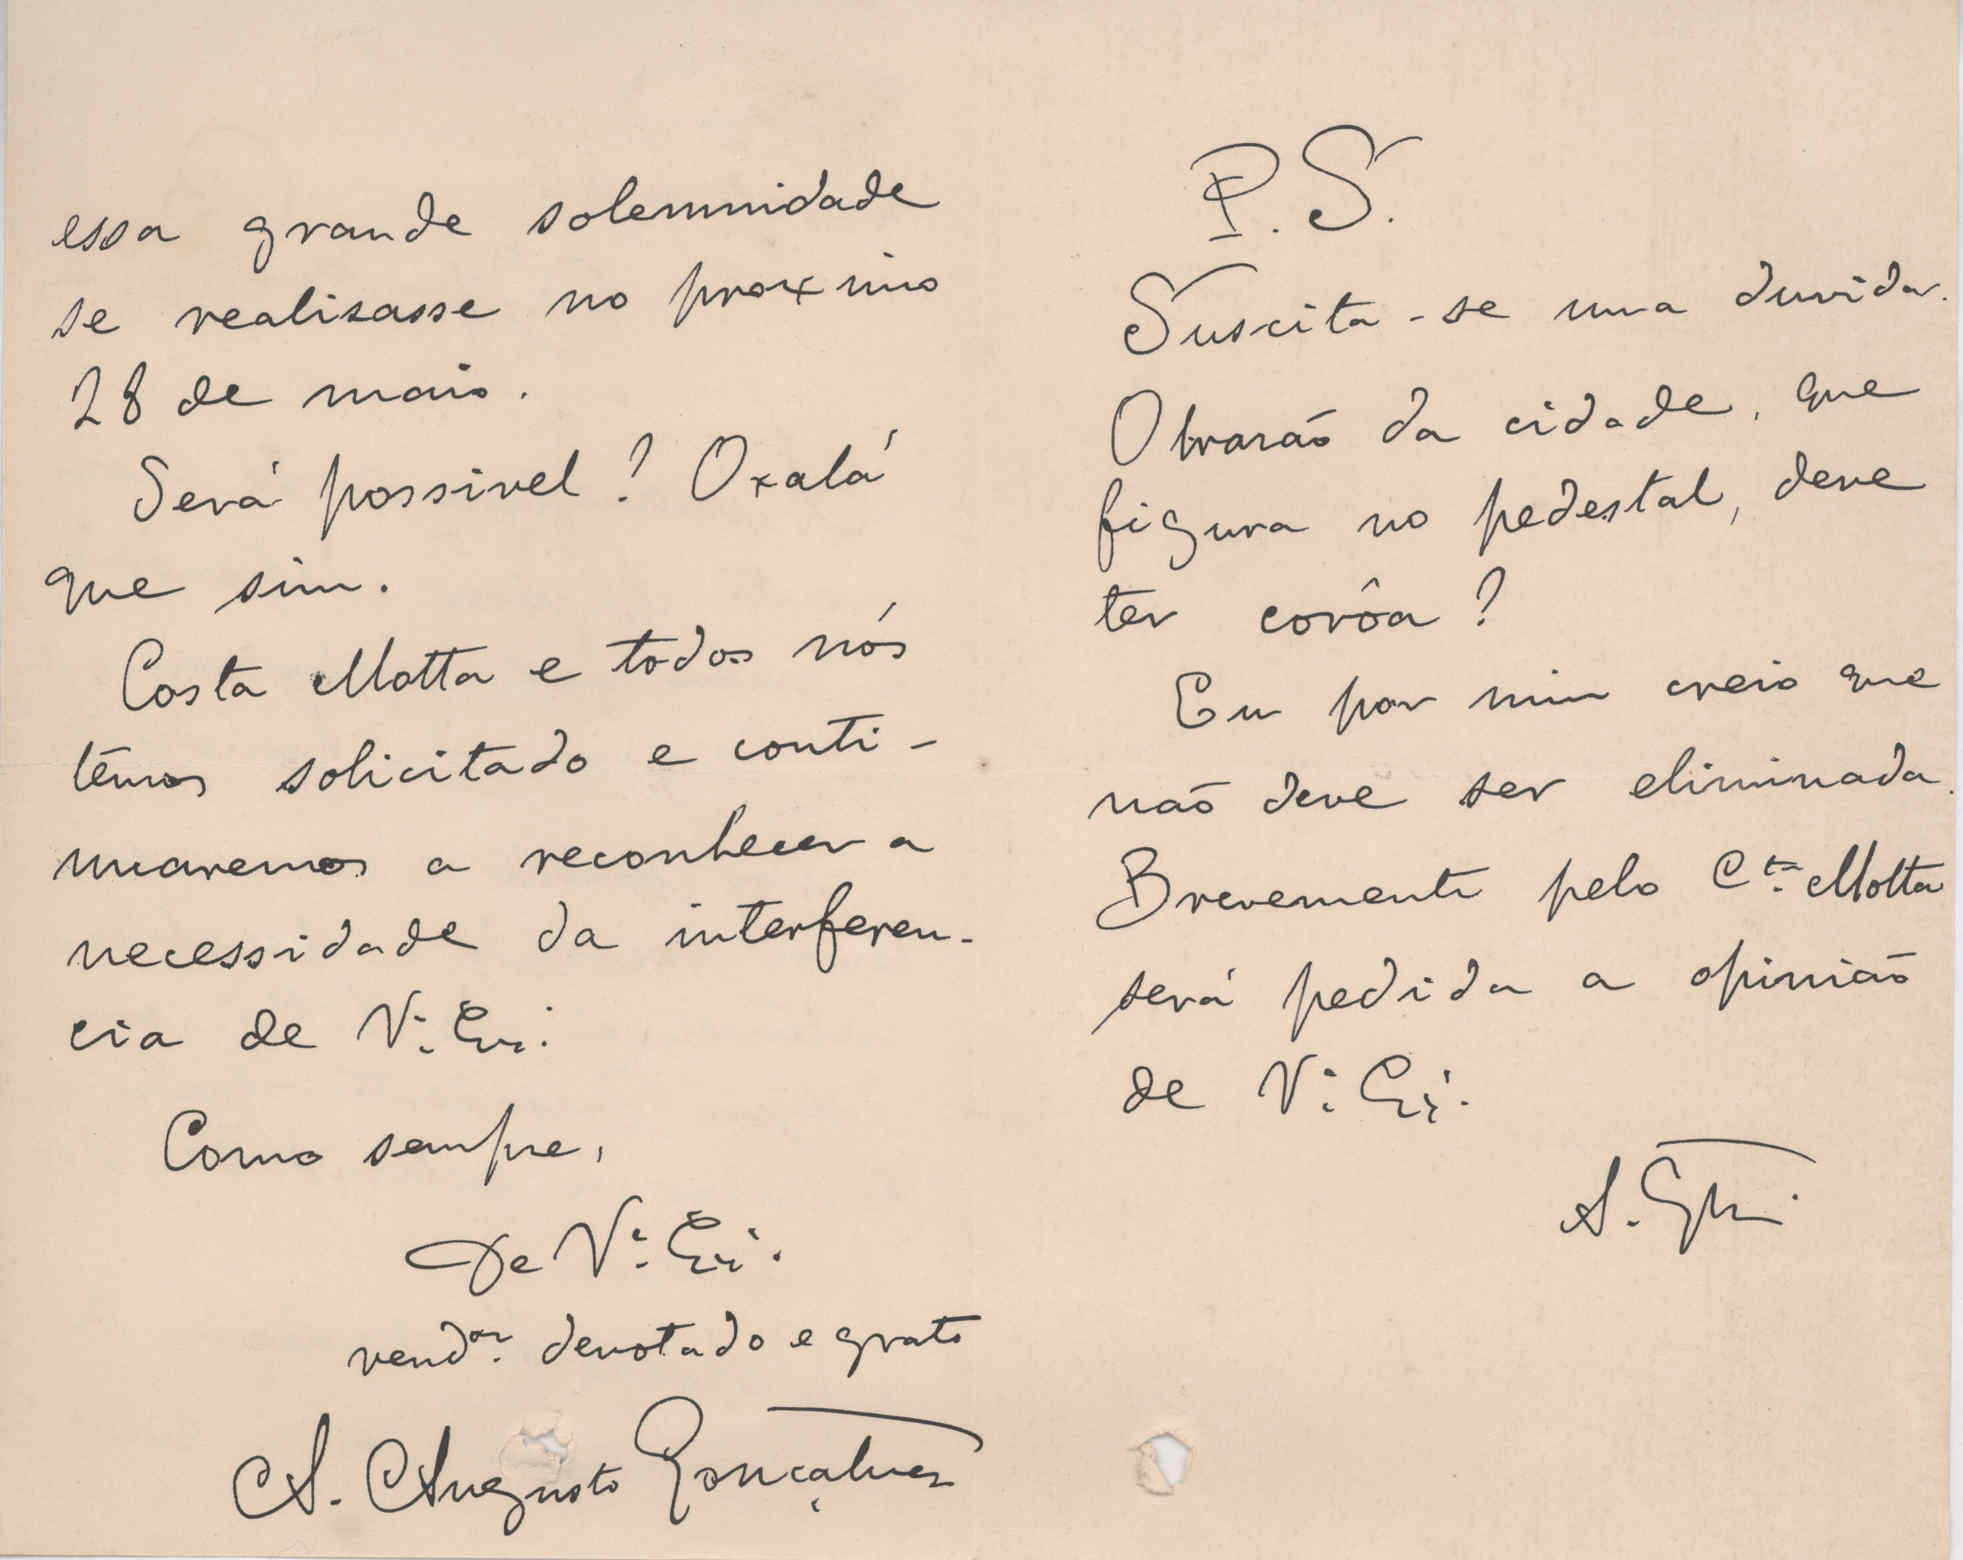 essa grande solemnidade
se realisasse no proximo
28 de maio.
Será possivel? Oxalá
que sim.
Costa Motta e todos nós
têmos solicitado e conti-
nuaremos a reconhecer a
necessidade da interferen-
cia de V. Ex.
Como sempre,
De V. Ex.
vendor. devotado e grato
A. Augusto Gonçalves
P.S.
Suscita-se uma duvida.
O brasão da cidade, que
figura no pedestal, deve
ter corôa?
Eu por mim creio que
não deve ser eliminada.
Brevemente pelo Cta. Motta
será pedida a opinião
de V. Ex.
A.